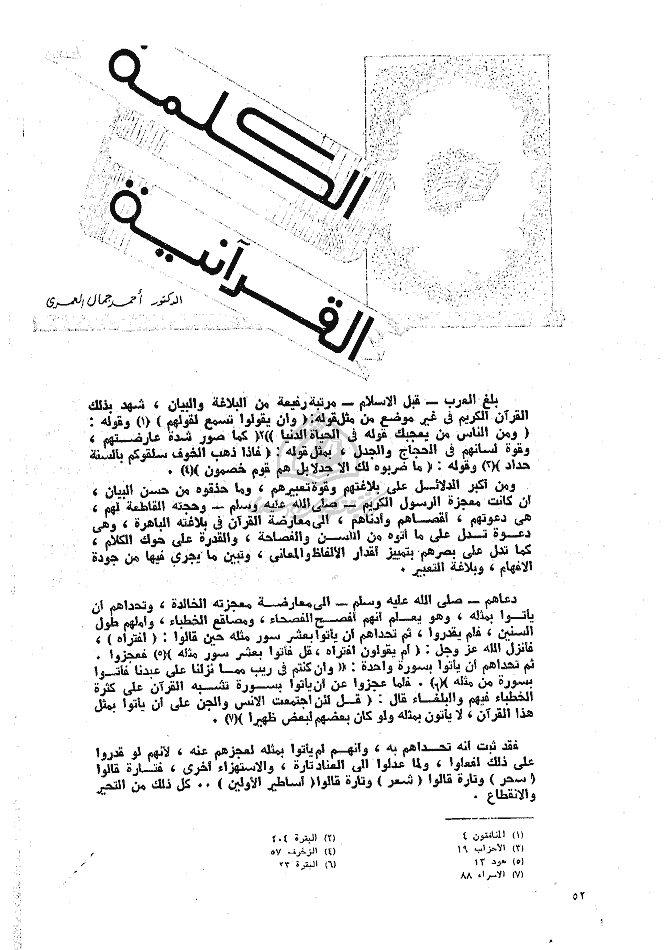 الكلمة
القرآنية
الدكتور أحمد جمال العمرى
بلغ العرب — قبل الاسلام — مرتبة رفيعة من البلاغة والبيان ، شهد بذلك
القرآن الكريم فى غير موضع من مثل قوله : ( وان يقولوا تسمع لقولهم ) (١) وقوله :
( ومن الناس من يعجبك قوله فى الحياة الدنيا ))٢( كما صور شدة عارضتهم ،
وقوة لسانهم فى الحجاج والجدل ، بمثل قوله : ( فاذا ذهب الخوف سلقوكم بألسنة
حداد )(٣) وقوله : ( ما ضربوه لك الا جدلا بل هم قوم خصمون )(٤) .
ومن أكبر الدلائل على بلاغتهم وقوة تعبيرهم ، وما حذقوه من حسن البيان ،
ان كانت معجزة الرسول الكريم — صلى الله عليه وسلم — وحجته القاطعة لهم ،
هى دعوتهم ، أقصاهم وأدناهم ، الى معارضة القرآن فى بلاغته الباهرة ، وهى
دعوة تدل على ما أتوه من اللسن والفصاحة ، والقدرة على حوك الكلام ،
كما تدل على بصرهم بتمييز أقدار الألفاظ والمعانى ، وتبين ما يجرى فيها من جودة
الافهام ، وبلاغة التعبير .
دعاهم — صلى الله عليه وسلم — الى معارضة معجزته الخالدة ، وتحداهم أن
يأتوا بمثله ، وهو يعلم انهم أفصح الفصحاء ، ومصاقع الخطباء ، وأملهم طول
السنين ، فلم يقدروا ، ثم تحداهم أن يأتوا بعشر سور مثله حين قالوا : ( افتراه ) ،
فانزل الله عز وجل : ( أم يقولون افتراه ، قل فأتوا بعشر سور مثله )(٥) فعجزوا .
ثم تحداهم أن يأتوا بسورة واحدة : (( وان كنتم فى ريب مما نزلنا على عبدنا فأتوا
بسورة من مثله )(٦) . فلما عجزوا عن أن يأتوا بسورة تشبه القرآن على كثرة
الخطباء فيهم والبلغاء قال : ( قل لئن اجتمعت الانس والجن على أن يأتوا بمثل
هذا القرآن ، لا يأتون بمثله ولو كان بعضهم لبعض ظهيرا )(٧) .
فقد ثبت انه تحداهم به ، وانهم لم يأتوا بمثله لعجزهم عنه ، لأنهم لو قدروا
على ذلك لفعلوا ، ولما عدلوا الى العناد تارة ، والاستهزاء أخرى ، فتارة قالوا
( سحر ) وتارة قالوا ( شعر ) وتارة قالوا ( أساطير الأولين ) .. كل ذلك من التحير
والانقطاع .
(١) المنافقون ٤
(٢) البقرة ٢٠٤
(٣) الأحزاب ١٩
(٤) الزخرف ٥٧
(٥) هود ١٣
(٦) البقرة ٢٣
(٧) الاسراء ٨٨
٥٢